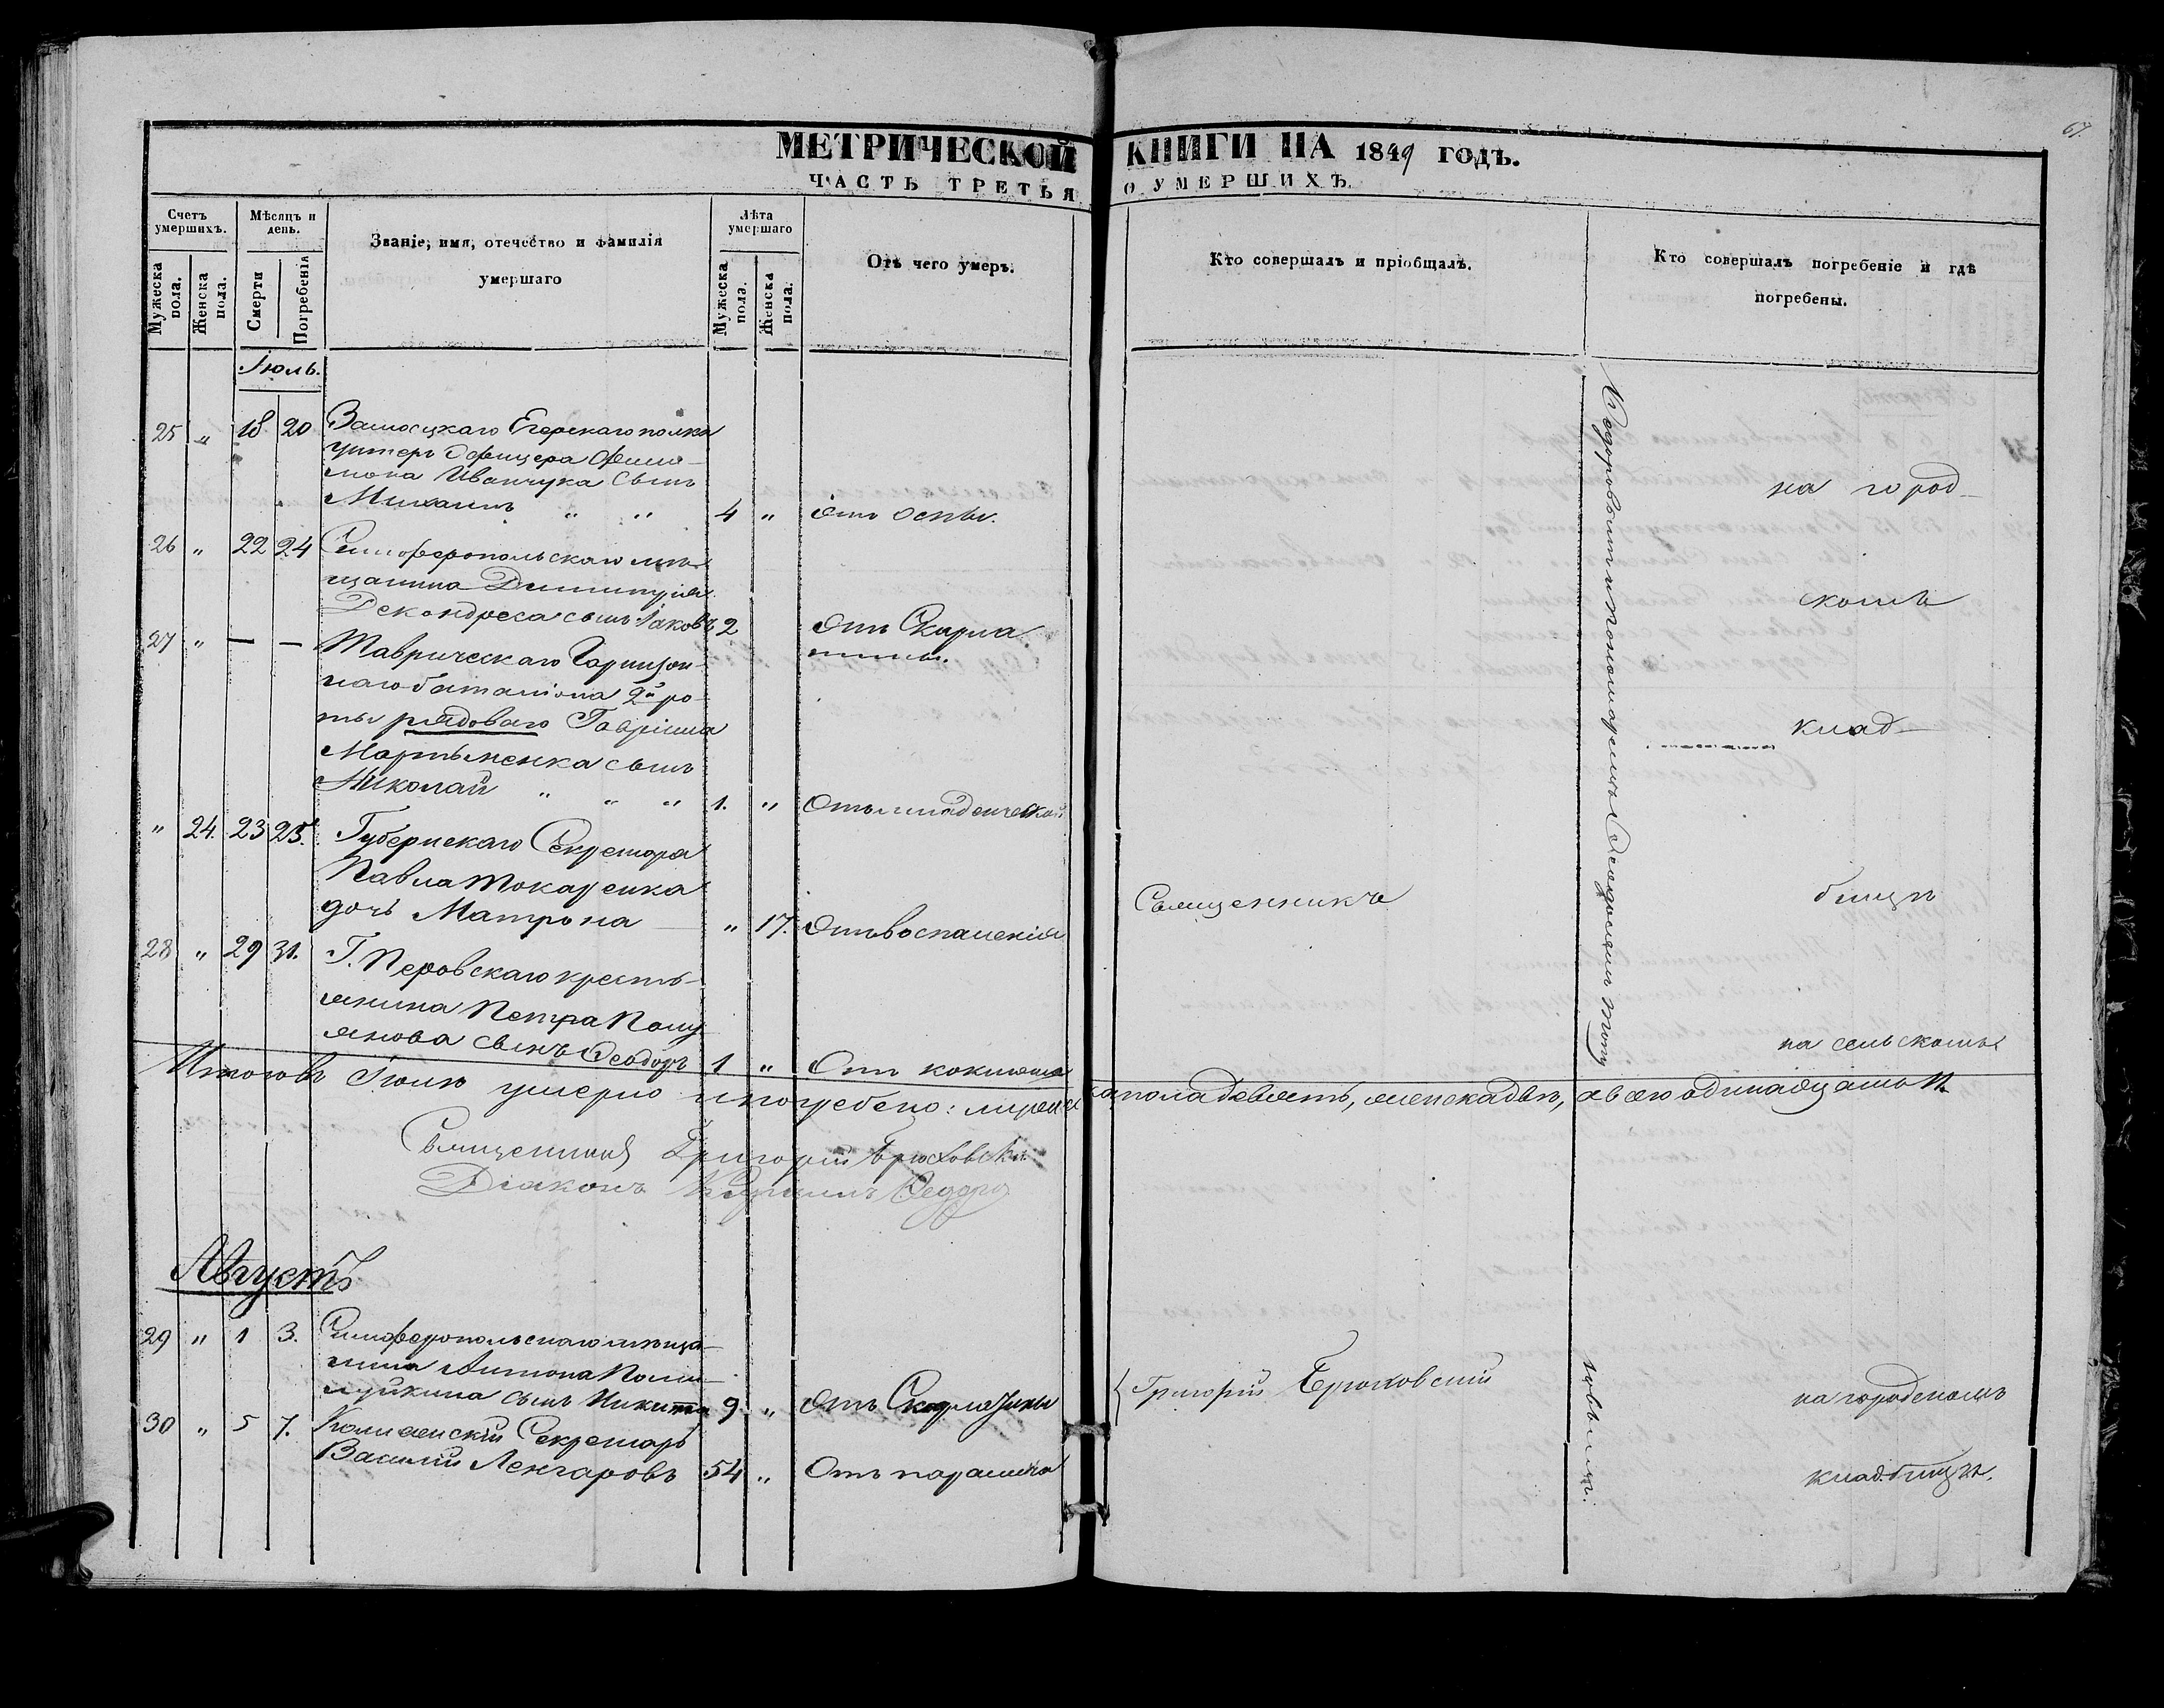 67.
МЕТРИЧЕСКОЙ КНИГИ НА 1849 ГОДЪ.
ЧАСТЬ ТРЕТЬЯ О УМЕРШИХЪ.
Счетъ умершихъ.
Мужеска пола.
Женска пола.
Мѣсяцъ и день.
Смерти
Погребенія
Званіе, имя, отечество и фамилія
умершаго
Лѣта умершаго
Мужеска пола.
Женска пола.
Отъ чего умеръ.
Кто совершалъ и пріобщалъ.
Кто совершалъ погребеніе и гдѣ
погребены.
Іюль.
25 „ 18 20 Замосцкаго Егерскаго полка
унтеръ офицера Фили-
мона Иванчука сынъ
Михаилъ „ „ 4 „ отъ оспы.
на город-
26 „ 22 24 Симферопольскаго мѣ-
щанина Димитрія
Декондреса сынъ Іаковъ 2 отъ Скарла
тины.
скомъ
27 „ — — Таврическаго Гарнизон-
наго баталіона 2й ро-
ты рядоваго Гавріила
Мартыненка сынъ
Николай „ „ „ 1. „ Отъ младенческой
клад-
„ 24. 23 25. Губернскаго Секретаря
Павла Токаренка
дочь Матрона „ 17. Отъ воспаленія
Священникъ
бищѣ
28 „ 29 31. Г. Перовскаго кресть-
янина Петра Полу
янова сынъ Феодоръ 1 „ Отъ коклюша
на сельскомъ
Итого въ Іюлѣ умерло и погребено: мужеска пола девять, женска двѣ, а всего одинадцать
Священникъ Григорій Брюховскій
Діаконъ Федоро
Августъ
29 „ 1 3. Симферопольскаго мѣща-
нина Антона
сынъ Никита 9. „ Отъ Скарлатины
Григорій Брюховскій
на городскомъ
30 „ 5 7. Коллежскій Секретарь
Василій Ленгаровъ 54 „ Отъ паралича
кладбищѣ.